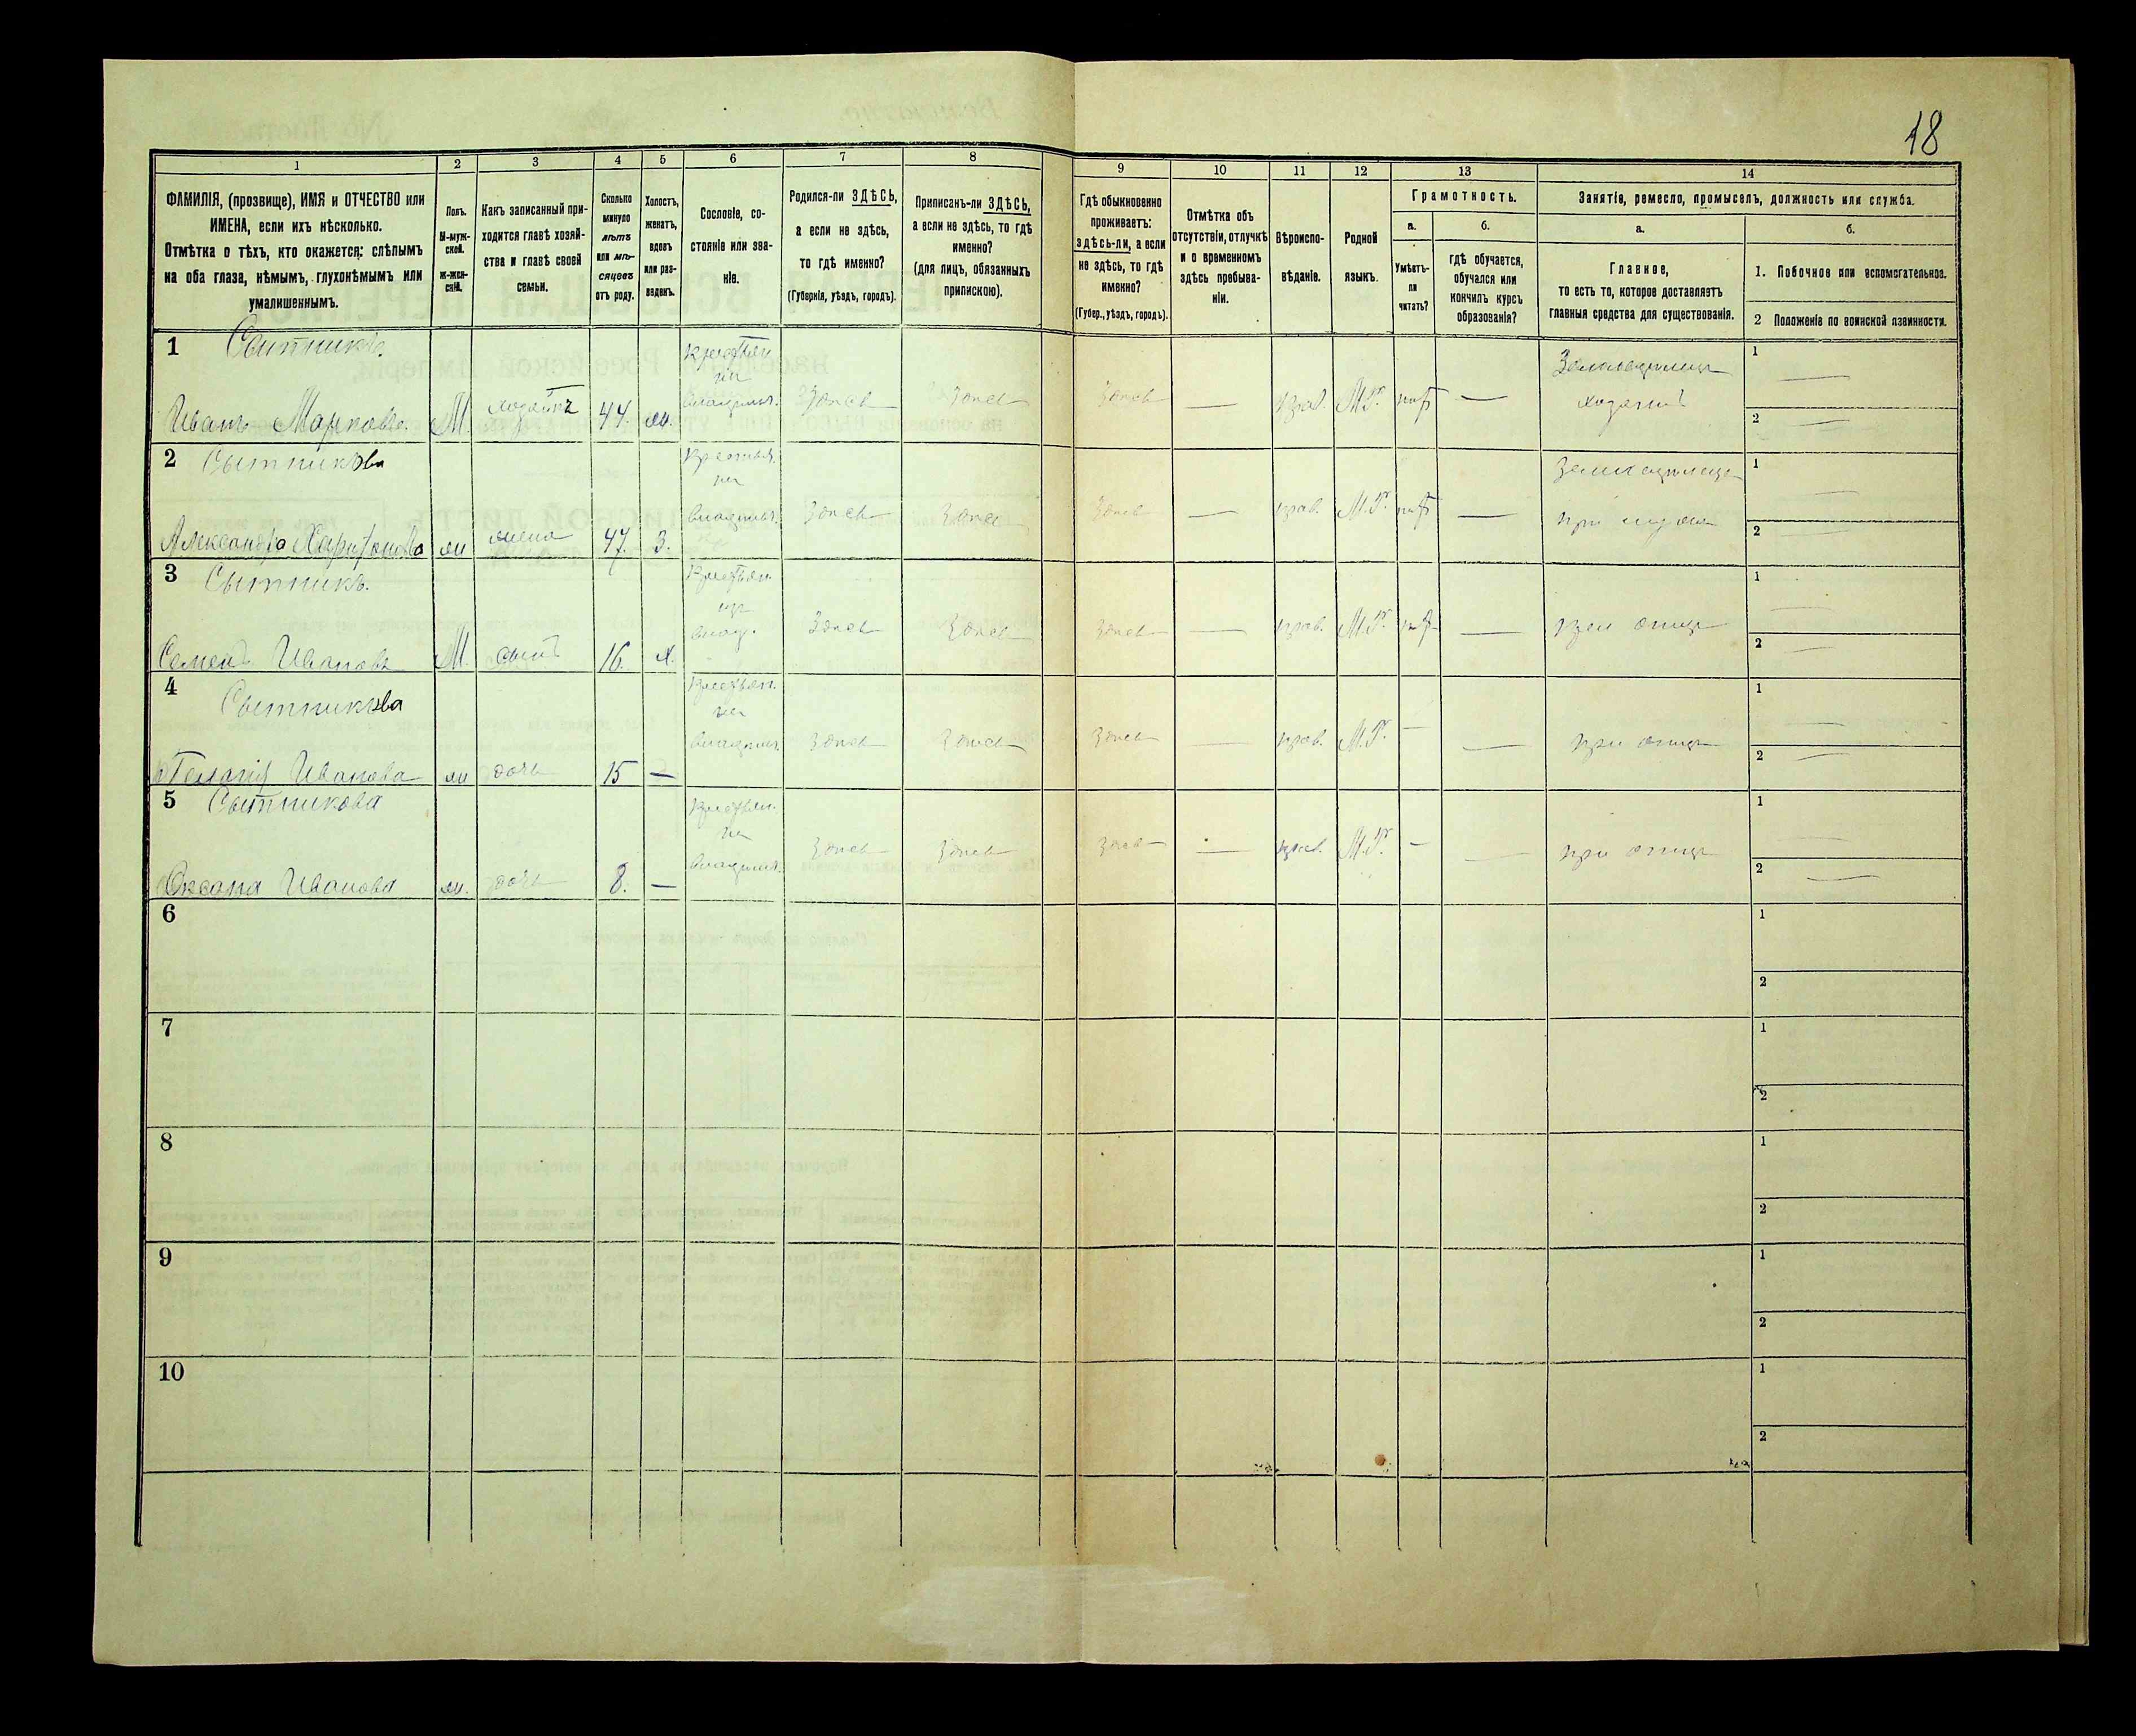 18
1 2 3 4 5 6 7 8 9 10 11 12 13 14
ФАМИЛІЯ, (прозвище), ИМЯ и ОТЧЕСТВО или
ИМЕНА, если ихъ нѣсколько.
Отмѣтка о тѣхъ, кто окажется: слѣпымъ
на оба глаза, нѣмымъ, глухонѣмымъ или
умалишеннымъ.
Полъ.
М-муж-
ской.
ж-жен-
скій.
Какъ записанный при-
ходится главѣ хозяй-
ства и главѣ своей
семьи.
Сколько
минуло
лѣтъ
или мѣ-
сяцевъ
отъ роду.
Холостъ,
женатъ,
вдовъ
или раз-
веденъ.
Сословіе, со-
стояніе или зва-
ніе.
Родился-ли ЗДѢСЬ,
а если не здѣсь,
то гдѣ именно?
(Губернія, уѣздъ, городъ).
Приписанъ-ли ЗДѢСЬ,
а если не здѣсь, то гдѣ
именно?
(для лицъ, обязанныхъ
припискою).
Гдѣ обыкновенно
проживаетъ:
здѣсь-ли, а если
не здѣсь, то гдѣ
именно?
(Губер., уѣздъ, городъ).
Отмѣтка объ
отсутствіи, отлучкѣ
и о временномъ
здѣсь пребыва-
ніи.
Вѣроиспо-
вѣданіе.
Родной
языкъ.
Грамотность.
а.
Умѣетъ-
ли
читать?
б.
гдѣ обучается,
обучался или
кончилъ курсъ
образованія?
Занятіе, ремесло, промыселъ, должность или служба.
а.
Главное,
то есть то, которое доставляетъ
главныя средства для существованія.
б.
1. Побочное или вспомогательное.
2 Положеніе по воинской повинности.
1 Сытникъ
Крестьян
Земледѣлецъ 1
Иванъ Марковъ М хозяинъ 44 ж. Здѣсь Здѣсь Здѣсь — прав. М.Р. — хозяинъ
2
2 Сытникова
1
Александра Харитонова ж жена 47 З. Здѣсь Здѣсь Здѣсь — прав. М.Р. — при
2
3 Сытникъ.
1
Семенъ Ивановъ М. сынъ 16. х. Здѣсь Здѣсь Здѣсь — прав. М.Р. — при отцѣ
2
4 Сытникова
1
Пелагія Иванова ж дочь 15 — Здѣсь Здѣсь Здѣсь — прав. М.Р. — — при отцѣ
2
5 Сытникова
1
Оксана Иванова ж. дочь 8. — Здѣсь Здѣсь Здѣсь — прав. М.Р. — — при отцѣ
2
6 1
2
7 1
2
8 1
2
9 1
2
10 1
2